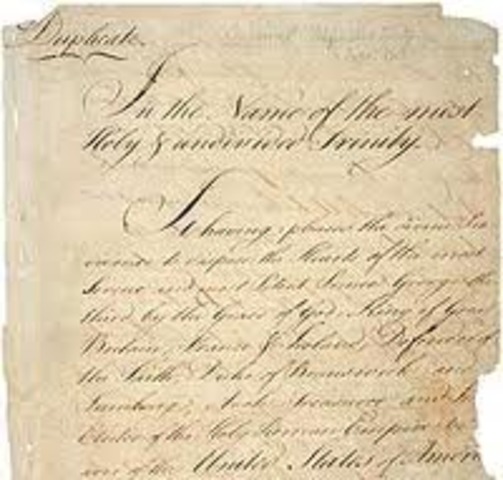 Duplicate.
In the Name of the most
Holy & undivided Trinity.
It having pleased the divine Pro
vidence to dispose the Hearts of the most
Serene and most Potent Prince George the
third, by the Grace of God, King of Great
Britain, France & Ireland, Defender of
the Faith, Duke of Brunswick and
Lunebourg, Arch Treasurer and
Elector of the Holy Roman Empire &c.
and of the United States of Amer